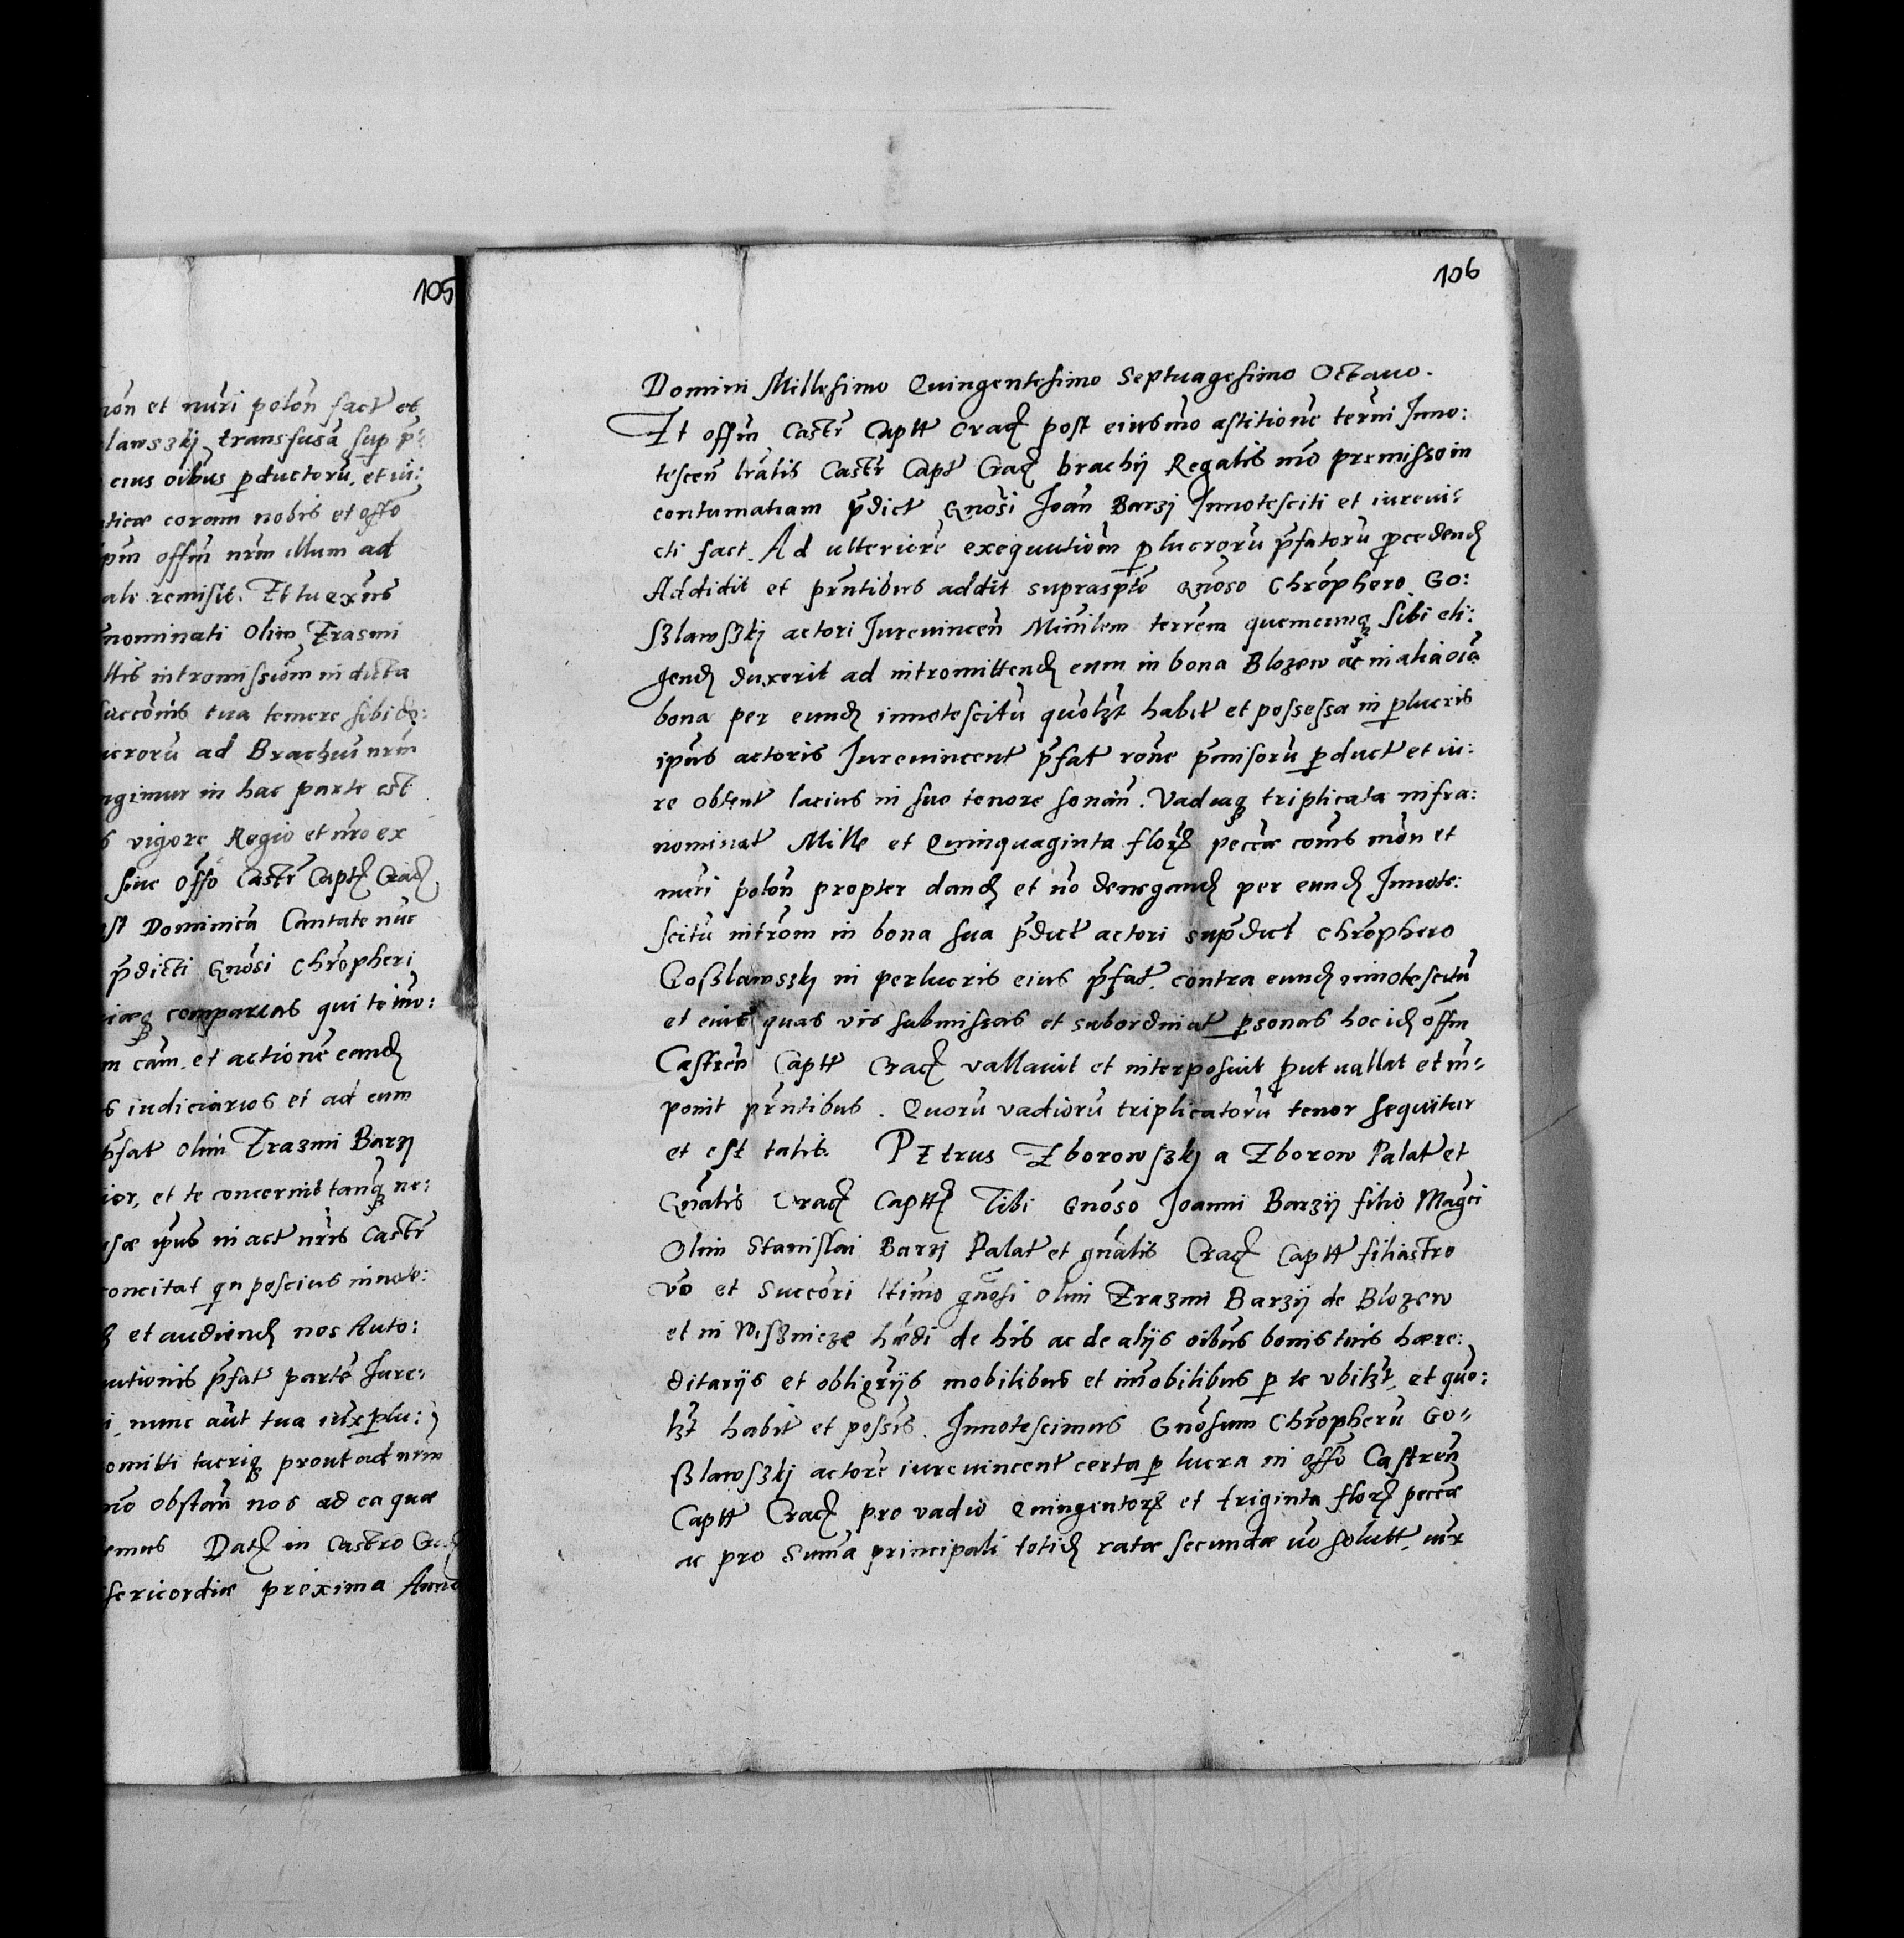 105
nōn et nūri polōn fact et
lawszkij transfusā sup p̄
eius oībus pductorū, et iu:
coram nobis et offō
offm̄ nrm̄ illum ad
remisit. Et tu exn̄s
nominati Olim Erasmi
intromissiōm in dicta
succōris tua temere sibi
ad Brachiū nrm̄
in hac parte est
vigore Regio et nr̄o ex
siue offō Castr̄ Capt Crac
Dominicā Cantate nūc
p̄dicti Gnōsi Chrōpheri
compareas qui te inno:
cām. et actionē eand
iudiciarios et ad eum
p̄fat olim Erazmi Barzj
et te concernit tanq ne:
ip̄us in act nr̄is Castr̄
concitat
et audiend nos Auto:
p̄fat partē Iure:
nunc aūt tua
tuerīq prout ad nrm̄
nō obstan̄ nos ad ea quæ
Dat in Castro Crac
proxima Anno
106
Domini Millesimo Quingentesimo Septuagesimo Octauo.
Et offm̄ Castr̄ Captt Crac post eiusmō astitionē termī Inno:
tescen̄ lrālis Castr̄ Capt Crac brachij Regalis mō premisso in
contumatiam p̄dict Gnōsi Joān Barzj Innotesciti et iureui:
cti fact. Ad ulteriorē exequutiōm plucrorū p̄fatorū pcedend
Addidit et pn̄tibus addit supraspt̄o Gnōso Chrōphero Go:
szlawszkj actori Jureuincen̄ Min̄ilem terrēm quemcunq sibi eli:
gend duxerit ad intromittend eum in bona Blozew āc in alia oīa
bona per eund innotescitū quolzt habit et possessa in plucris
ip̄ius actoris Jureuincent p̄fat rōne p̄missorū pduct et iu:
re obtent lacius in suo tenore sonān. Vadiaq triplicata infra:
nominat Mille et Quinquaginta flor peccæ com̄is mōn et
nūeri polōn propter dand et nō denegand per eund Innote:
scitū intrōm in bona sua p̄dict actori sup̄dict Chrōphero
Goszlawszkj in perlucris eius p̄fat. contra eund innotescitū
et eius quas vis submissas et subordinat psonas hoc id offm̄
Castren̄ Captt Crac vallauit et interposuit put uallat et in-
ponit pn̄tibus. Quorū vadiorū triplicatorū tenor sequitur
et est talis. PEtrus Zborowszkj a Zborow Palat et
Gnālis Crac Captt Tibi Gnōso Joanni Barzij filio Magci
Olim Stanislai Barzj Palat et gnālis Crac Captt filiastro
vō et Succōri ltīmo gnōsi olim Erazmi Barzij de Blozew
et in Wisznicze hædi de his ac de alijs oībus bonis tuis hære:
ditarijs et obligrijs mobilibus et im̄obilibus p te vbilzt, et quo:
lzt habit et possis. Innotescimus Gnōsum Chrōpherū Go-
szlawszkj actorē iureuincent certa plucra in offō Castren̄
Captt Crac pro vadio Quingentor et triginta flor peccæ
ac pro Sum̄a principali totid ratæ secundæ nō solutt, iux